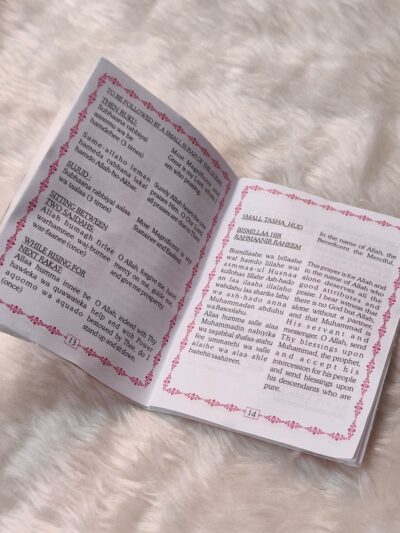 TO BE FOLLOWED BY A SMALL SURAH OF THE QURAN
THEN RUKU:
Subhaana rabbiyal
azeemu wa be
hamdehee (3 times)
Most Magnificent and
Great is my Lord, when I
am who praises
Same-allaho leman
hameda rabbana lakal
hamdo Allah-ho-Akbar.
Surely Allah hears the one
praises Him. O Our Lord
all praises are due to Thee.
SUJUD:
Subhaana rabbiyal aalaa
wa taalaa (3 times)
Most Magnificent is my
Sustainer and highest.
SITTING BETWEEN
TWO SAJDAHS:
Allaa humagh firlee
warhamnee war-zuqnee
war-faanee (once)
O Allah, forgive me, have
mercy on me, guide me
and give me prosperity.
WHILE RISING FOR
NEXT RAKAT:
Allaa humma innee be
hawlika wa quwwateka
aqoomo wa aquado
(once)
O Allah, indeed with Thy
help, and with Power,
bestowed by Thee, do I
stand up and sit down.
13
SMALL TASHA_HUD
BISMILLAA HIR
RAHMAANIR RAHEEM
In the name of Allah, the
Beneficent the Merciful
Bismillaahe wa billaahe
wal hamdo lilahe wal
asmaa-ul Husnaa
kulohaa lillahe Ash-hado
an laa ilaaha illalaho
wahdahu laa sharika lahu
wa ash-hado anna
Muhammadan abduhu
wa Rasoolahu.
Allaa humma salle alaa
Muhammadin natiyyie
wa taqabbal shafaa-atahu
fee ummatehi wa salle
alaihe wa alaa ahle
baitehit taahineen.
This prayer is for Allah and
in the name of Allah who
alone deserves all the
good attribute, and
praise. I bear witness that
there is no God but Allah,
alone without a partner,
and that Muhammad is
His servant and
messenger. O Allah, send
Thy blessings upon
Muhammad, the prophet,
and accept his
intercession for his people
and send blessings upon
his descendants who are
pure.
14